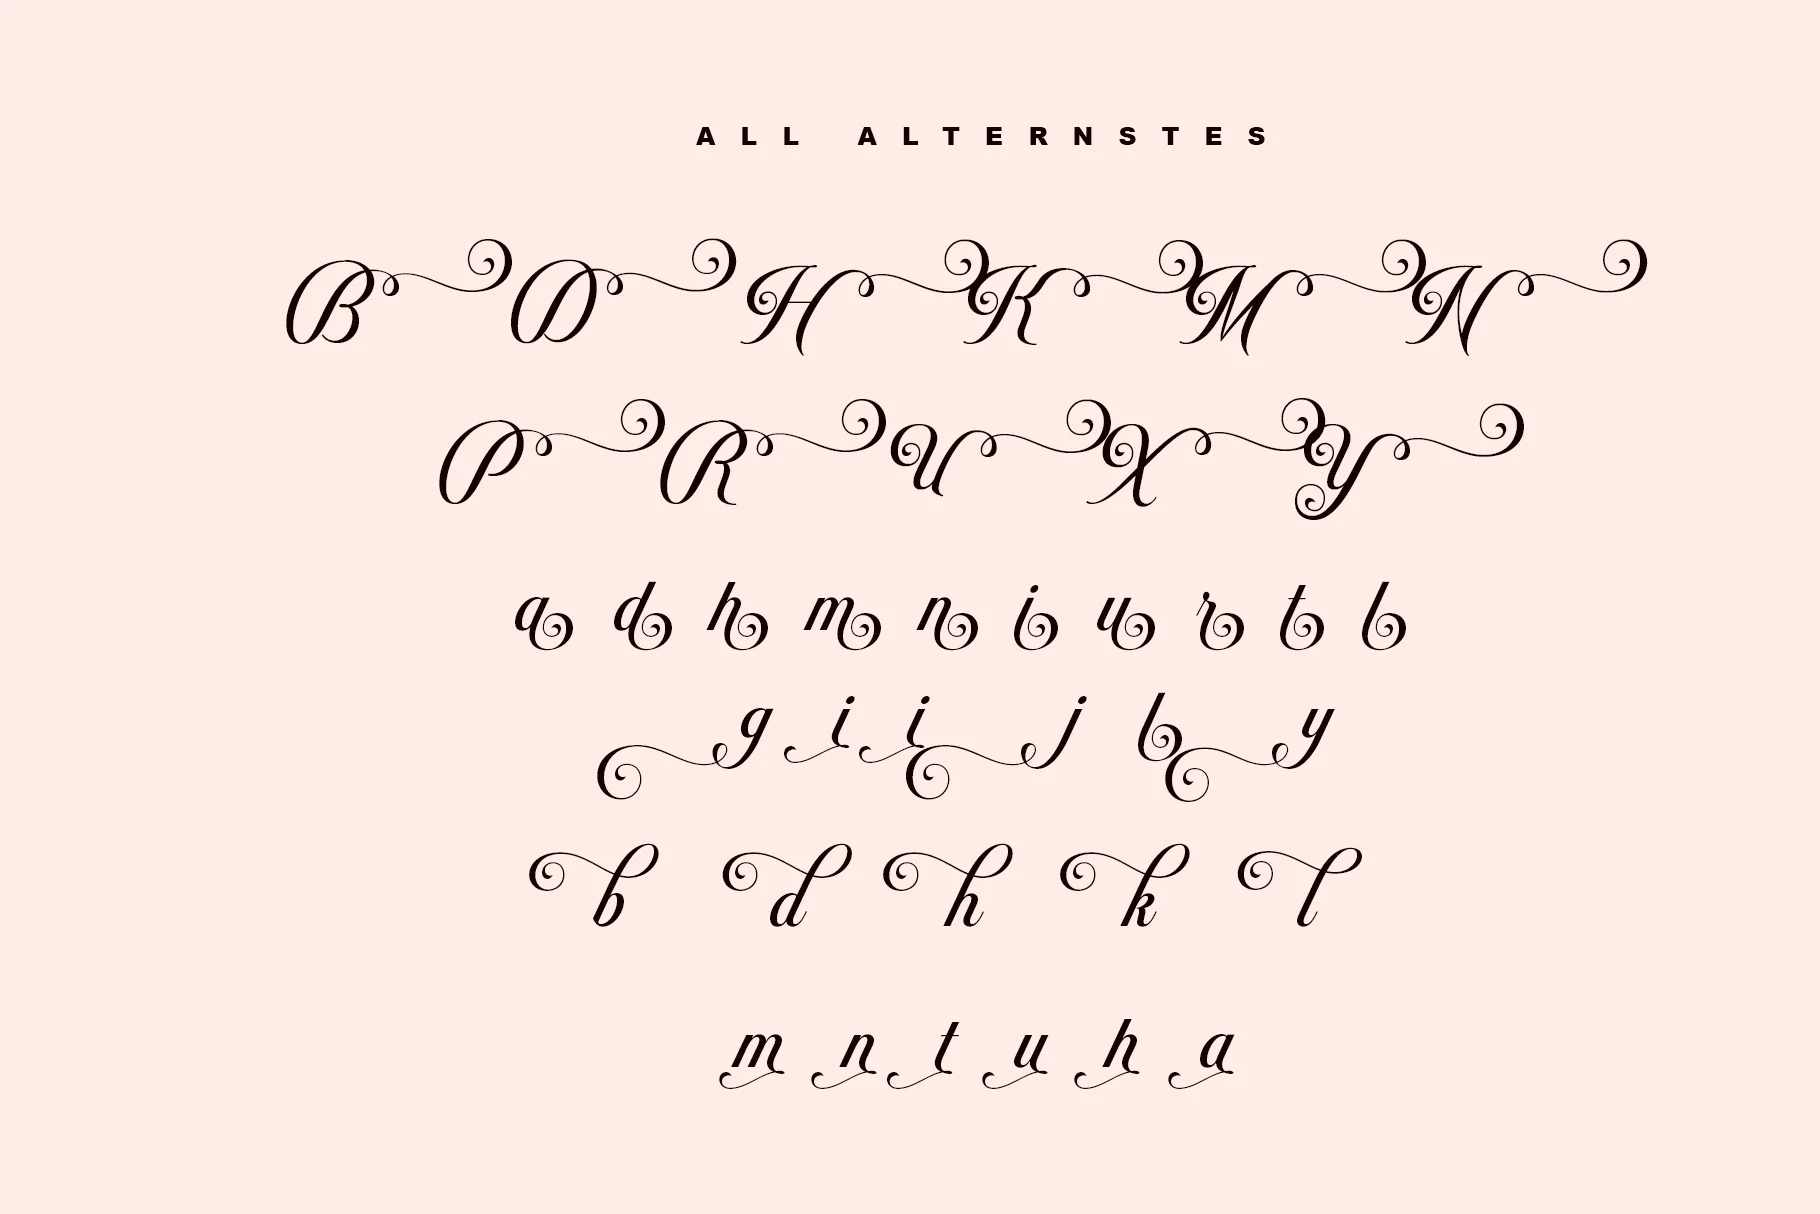 ALL ALTERNSTES
B D H K M N
P R U X Y
a d h m n i u r t l
g i i j l y
b d h k l
m n t u h a